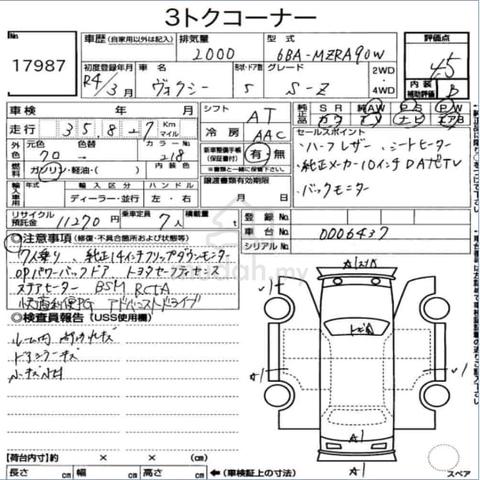 3トクコーナー
17987
車歴 (自家用以外は記入) 排気量 2000 型式 6BA-MZRA90W 評価点 4.5
初度登録年月 R4/3月 車名 ヴォクシー 形状・ドア数 5 グレード S-Z 2WD・4WD 内装補助評価 B
車検 年 月 シフト AT
走行 35,827 Km マイル 冷房 AAC
純正品 SR 純AW PS PW
カワ TV ナビ エアB
外色 元色 70 色替 カラーNo. 218
ガソリン・軽油・( ) 内装色
新車整備手帳(保証書付) 有・無
※書類と一緒に保管下さい
セールスポイント
・ハーフレザー、シートヒーター
・純正メーカー10インチDAナビTV
・バックモニター
輸入車用 年式 輸入区分 ディーラー・並行 ハンドル 左・右
譲渡書類有効期限
月 日
リサイクル預託金 11270円 乗車定員 7人 積載量 t
登録No.
車台No. 0006437
シリアルNo.
◎注意事項 (修復・不具合箇所および状態等)
7人乗り、純正14インチフリップダウンモニター
OPパワーバックドア トヨタセーフティセンス
ステアヒーター BSM RCTA
快適利便PG アドバンストドライブ
◎検査員報告 (USS使用欄)
mudah.my
A1
トビ
A1
A1
【荷台内寸】約 × × (cm)
長さ cm 幅 cm 高さ cm ←(車検証上の寸法)
スペア